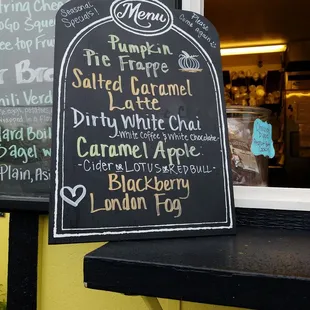 Seasonal
Specials!
Menu
Please
come again!
Pumpkin
Pie Frappe
Salted Caramel
Latte
Dirty White Chai
White Coffee & White Chocolate
Caramel Apple
-Cider or LOTUS or REDBULL-
Blackberry
London Fog
tring Chee
ree top Frui
r Br
hili Verd
ard Boil
agel w
Plain, As